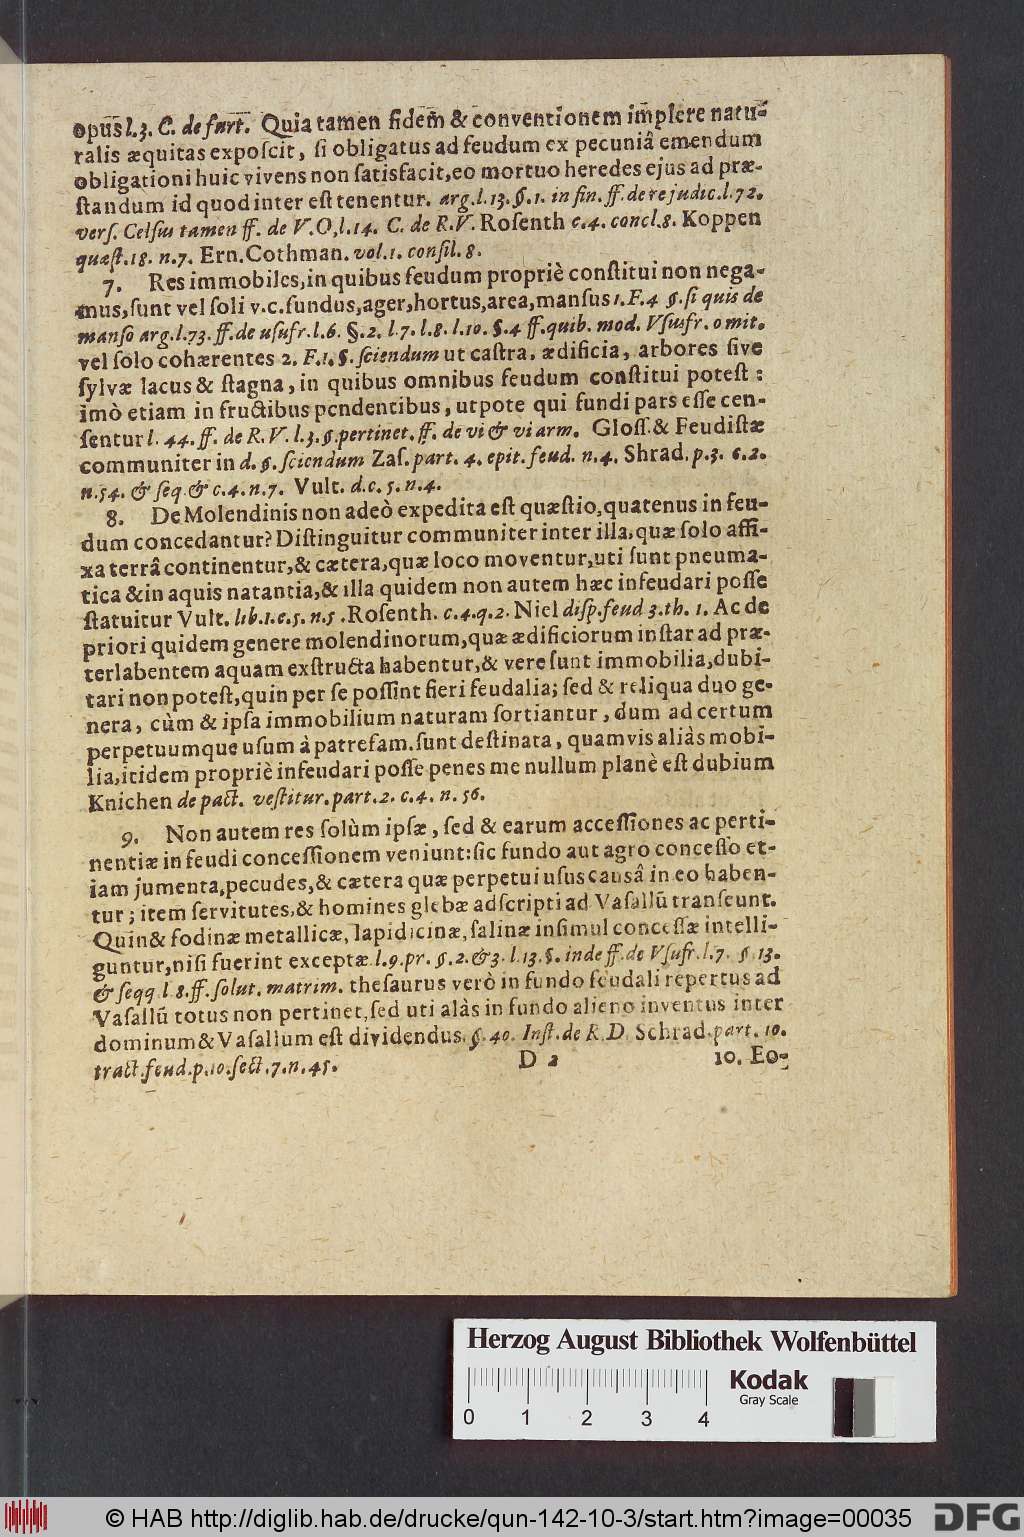 opus l.3. C. de furt. Quia tamen fidem & conventionem implere natu-
ralis æquitas exposcit, si obligatus ad feudum ex pecuniâ emendum
obligationi huic vivens non satisfacit, eo mortuo heredes ejus ad præ-
standum id quod inter est tenentur. arg. l. 13. §. 1. in fin. ff. de re judic. l. 72.
vers. Celsus tamen ff. de V. O, l. 14. C. de R. V. Rosenth c. 4. concl. 8. Koppen
quæst. 18. n. 7. Ern. Cothman. vol. 1. consil. 8.
7. Res immobiles, in quibus feudum propriè constitui non nega-
mus, sunt vel soli v. c. fundus, ager, hortus, area, mansus 1. F. 4 §. si quis de
manso arg. l. 73. ff. de usufr. l. 6. §. 2. l. 7. l. 8. l. 10. §. 4 ff. quib. mod. Vsusfr. omit.
vel solo cohærentes 2. F. 1. §. sciendum ut castra, ædificia, arbores sive
sylvæ lacus & stagna, in quibus omnibus feudum constitui potest:
imò etiam in fructibus pendentibus, utpote qui fundi pars esse cen-
sentur l. 44. ff. de R. V. l. 3. §. pertinet. ff. de vi & vi arm. Gloss. & Feudistæ
communiter in d. §. sciendum Zas. part. 4. epit. feud. n. 4. Shrad. p. 3. c. 2.
n. 54. & seq. & c. 4. n. 7. Vult. d. c. 5. n. 4.
8. De Molendinis non adeò expedita est quæstio, quatenus in feu-
dum concedantur? Distinguitur communiter inter illa, quæ solo affi-
xa terrâ continentur, & cætera, quæ loco moventur, uti sunt pneuma-
tica & in aquis natantia, & illa quidem non autem hæc infeudari posse
statuitur Vult. lib. 1. c. 5. n. 5. Rosenth. c. 4. q. 2. Niel disp. feud 3. th. 1. Ac de
priori quidem genere molendinorum, quæ ædificiorum instar ad præ-
terlabentem aquam exstructa habentur, & vere sunt immobilia, dubi-
tari non potest, quin per se possint fieri feudalia; sed & reliqua duo ge-
nera, cùm & ipsa immobilium naturam sortiantur, dum ad certum
perpetuumque usum à patrefam. sunt destinata, quamvis aliàs mobi-
lia, itidem propriè infeudari posse penes me nullum planè est dubium
Knichen de pact. vestitur. part. 2. c. 4. n. 56.
9. Non autem res solùm ipsæ, sed & earum accessiones ac perti-
nentiæ in feudi concessionem veniunt: sic fundo aut agro concesso et-
iam jumenta, pecudes, & cætera quæ perpetui usus causâ in eo haben-
tur; item servitutes, & homines glebæ adscripti ad Vasallū transeunt.
Quin & fodinæ metallicæ, lapidicinæ, salinæ insimul concessæ intelli-
guntur, nisi fuerint exceptæ l. 9. pr. §. 2. & 3. l. 13. §. inde ff. de Vsufr. l. 7. §. 13.
& seqq l. 8. ff. solut. matrim. thesaurus verò in fundo feudali repertus ad
Vasallū totus non pertinet, sed uti alàs in fundo alieno inventus inter
dominum & Vasallum est dividendus. §. 40. Inst. de R. D. Schrad. part. 10.
tract. feud. p. 10. sect. 7. n. 45.
D 2
10. Eo-
Herzog August Bibliothek Wolfenbüttel
Kodak
Gray Scale
0 1 2 3 4
© HAB http://diglib.hab.de/drucke/qun-142-10-3/start.htm?image=00035
DFG